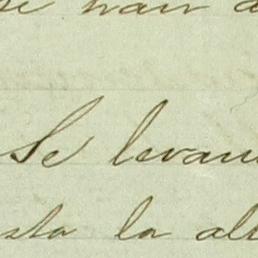 se han a
Se levan
sta la al